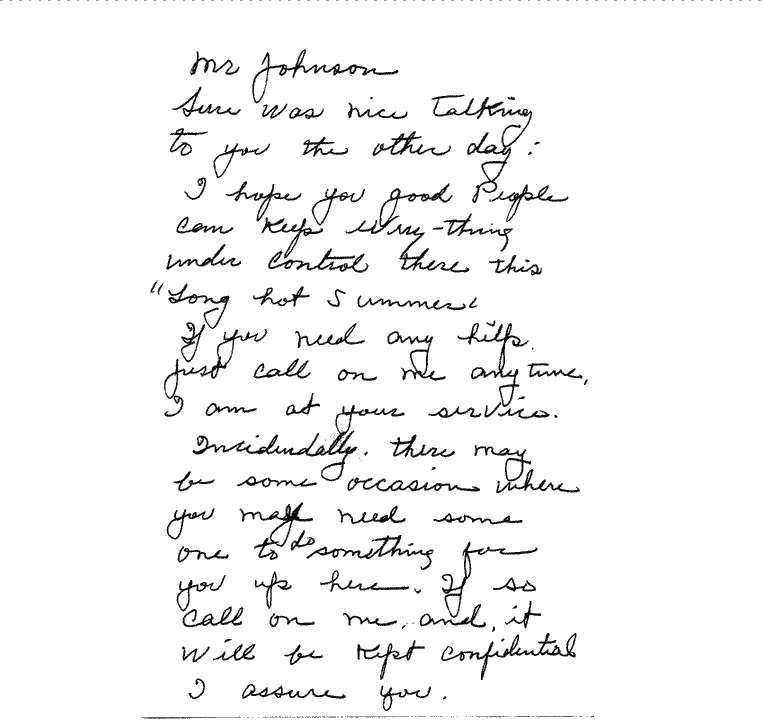 Mr Johnson
Sure was nice Talking
to you the other day:
I hope you good People
can Keep every-thing
under control there this
"Long hot Summer
If you need any help.
just call on me anytime,
I am at your service.
Incidendally. there may
be some occasion where
you may need some
one to do something for
you up here. If so
call on me. and, it
will be Kept confidential
I assure you.